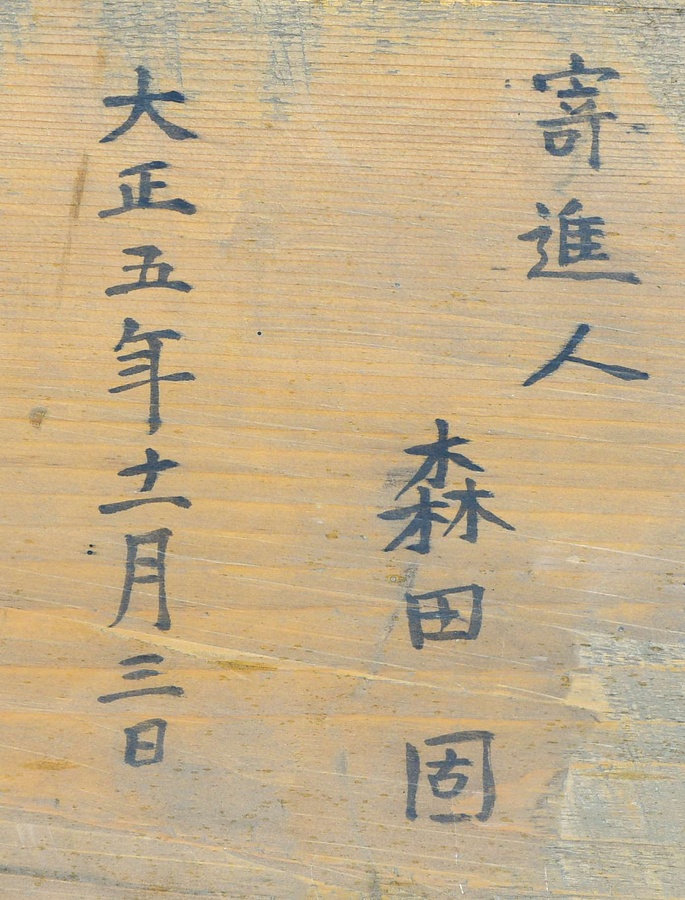 寄進人
森田固
大正五年十一月三日